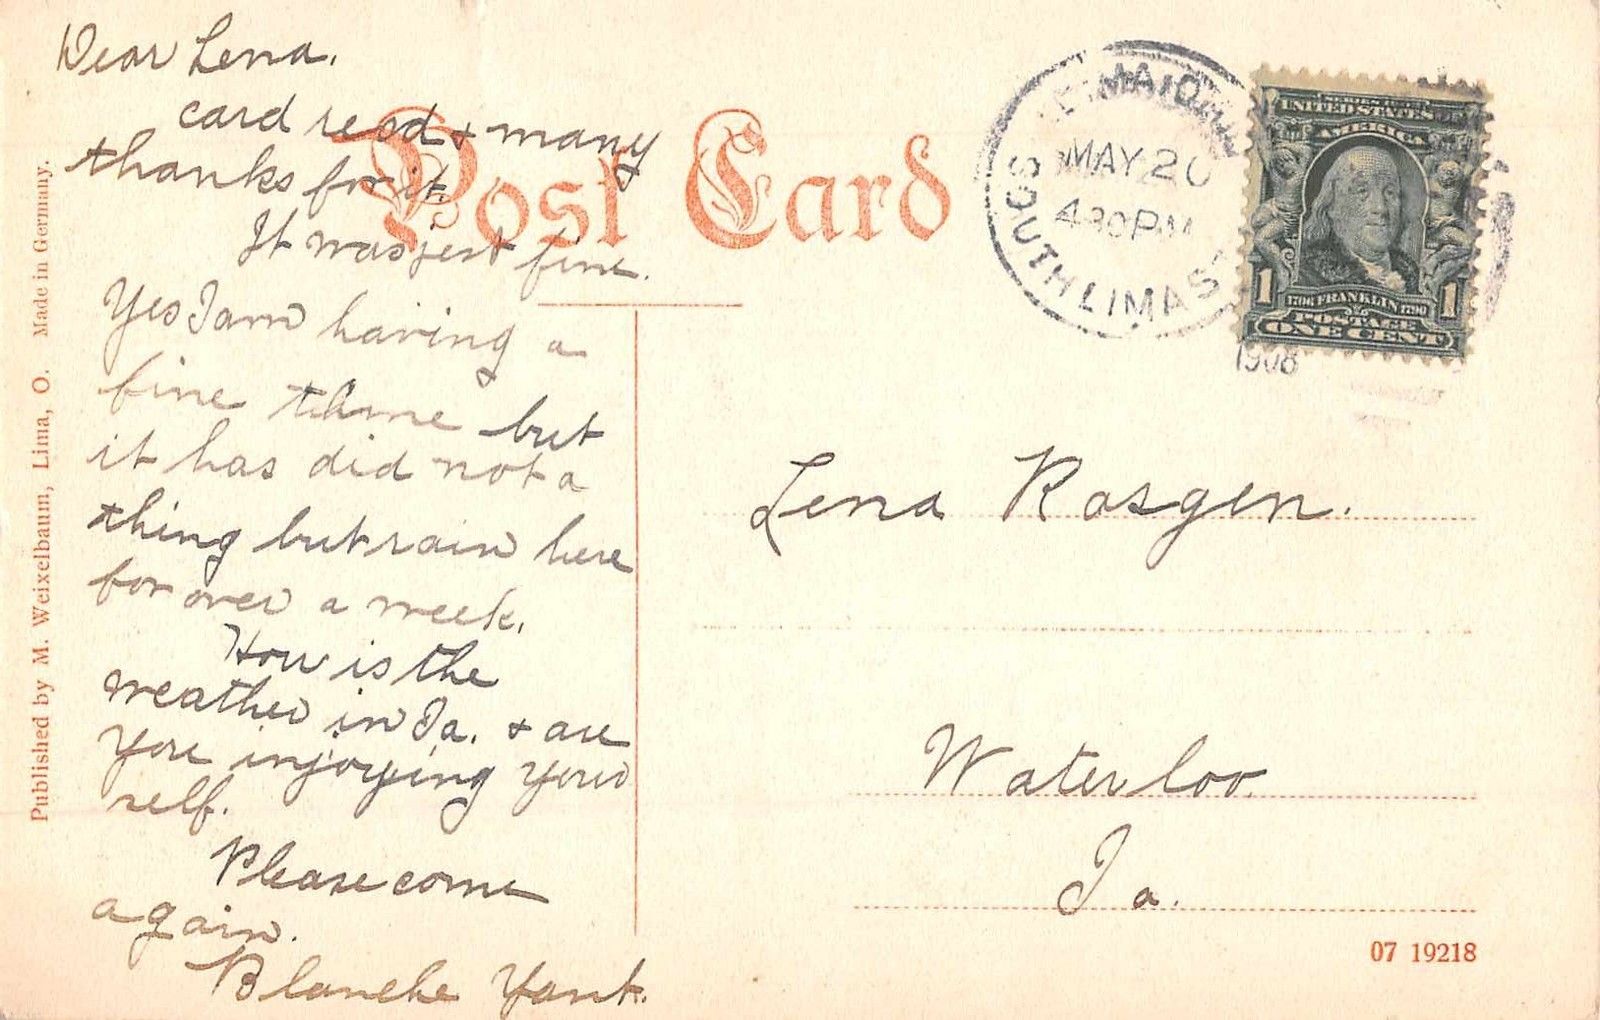 Dear Lena.
card re od & many
thanks for it.
It was jest fine.
Yes I am having a
fine time but
it has did not a
thing but rain here
for over a week.
How is the
weather in Ia. & are
you injoying your
self.
Please come
again.
Blanche Yant.
Post Card
Published by M. Weixelbaum, Lima, O. Made in Germany.
MAY 20
430PM
SOUTH LIMA ST
1908
UNITED STATES
AMERICA
1 1706 FRANKLIN 1790 1
POSTAGE
ONE CENT
Lena Rosgen.
Waterloo.
Ia.
07 19218